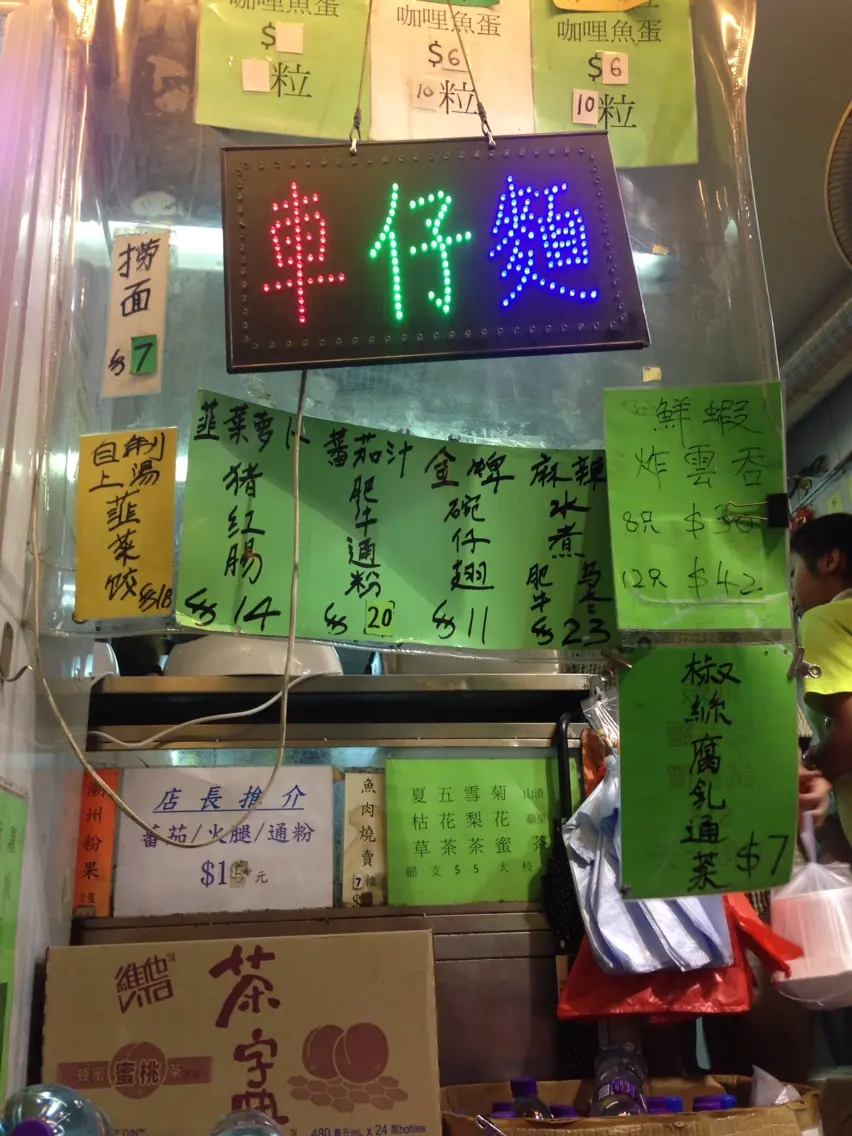 咖哩魚蛋
$
粒
咖哩魚蛋
$6
10粒
咖哩魚蛋
$6
10粒
車仔麵
撈面
$7
自制
上湯
韮菜餃
$18
韮菜萝卜
猪红肠
$14
蕃茄汁
肥牛通粉
$20
金牌
碗仔翅
$11
麻辣
水煮
肥牛
$23
鮮蝦
炸雲吞
8只 $36
12只 $42
椒絲腐乳通菜
$7
潮州粉果
店長推介
蕃茄/火腿/通粉
$15元
魚肉燒賣
7粒
夏枯草
五花茶
雪梨茶
菊花蜜
山渣
茶
細支$5 大枝
維他™
茶字典
蜂蜜
蜜桃
茶
480毫升mL x 24瓶bottles